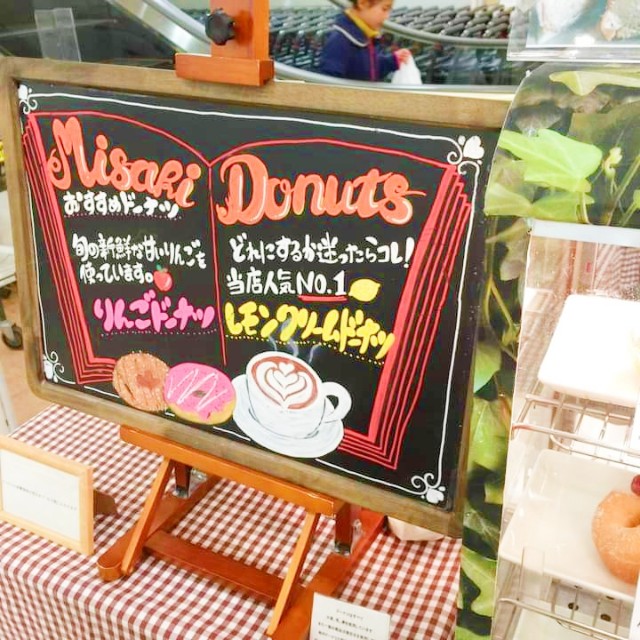 Misaki
おすすめドーナツ
旬の新鮮な甘いりんごを
使っています。
りんごドーナツ
Donuts
どれにするか迷ったらコレ!
当店人気NO.1
レモンクリームドーナツ